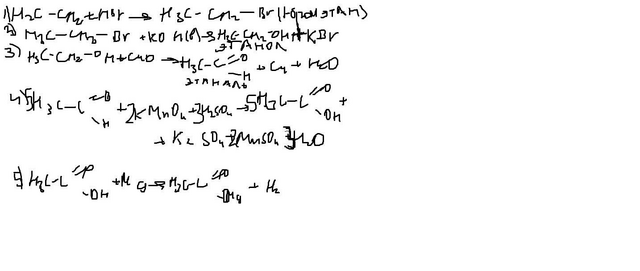 1) H₂C - CH₂ + HBr → H₃C - CH₂ - Br (бромэтан)
2) H₃C - CH₂ - Br + KOH → H₃C-CH₂-OH + KBr
этанол
3) H₃C-CH₂-OH + CuO → H₃C-C =O -H + Cu + H₂O
этаналь
4) 5H₃C-C =O -H + 2KMnO₄ + 3H₂SO₄ → 5H₃C-C =O -OH +
+ K₂SO₄ + 2MnSO₄ 3H₂O
5) H₃C-C =O -OH + Mg → H₃C-C =O -OMg + H₂